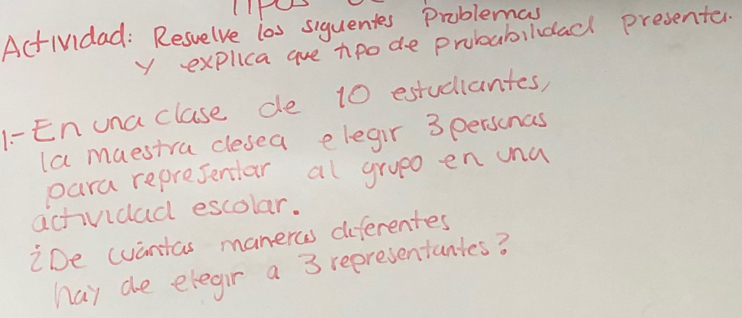 TIPOS
Actividad: Resuelve los siguentes Problemas
y explica que tipo de probabilidad presenta.
1.- En una clase de 10 estudiantes,
la maestra desea elegir 3 personas
para representar al grupo en una
actividad escolar.
¿De cuántas maneras diferentes
hay de elegir a 3 representantes?